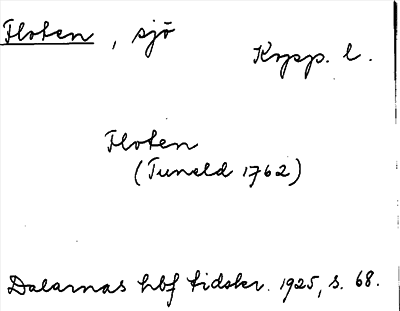 Floten, sjö
Kopp. l.
Floten
(Tuneld 1762)
Dalarnas hbf tidskr. 1925, s. 68.